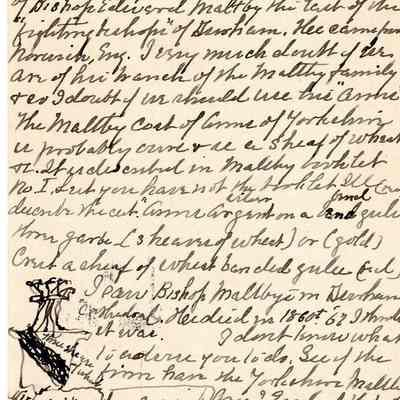 of Bishop Edward Maltby the last of the
"fighting bishops" of Durham. Hee came from
Norwich, Eng. I very much doubt if we
are of his branch of the Maltby family
& so I doubt if we should use his Arms
The Maltby coat of Arms of Yorkshire
is probably ours & as a sheaf of wheat
&c. It is described in Maltby booklet
No I. but you have not the booklet I'll
describe the cut. "Arms Argent on a bend gules
three garbs (3 sheaves of wheat) or (gold)
Crest a sheaf of wheat banded gules (red)
I saw Bishop Maltby's in Durham
Cathedral. He died in 1860 or '62 I think
it was. I don't know what
to advise you to do. See if the
firm has the Yorkshire Maltby